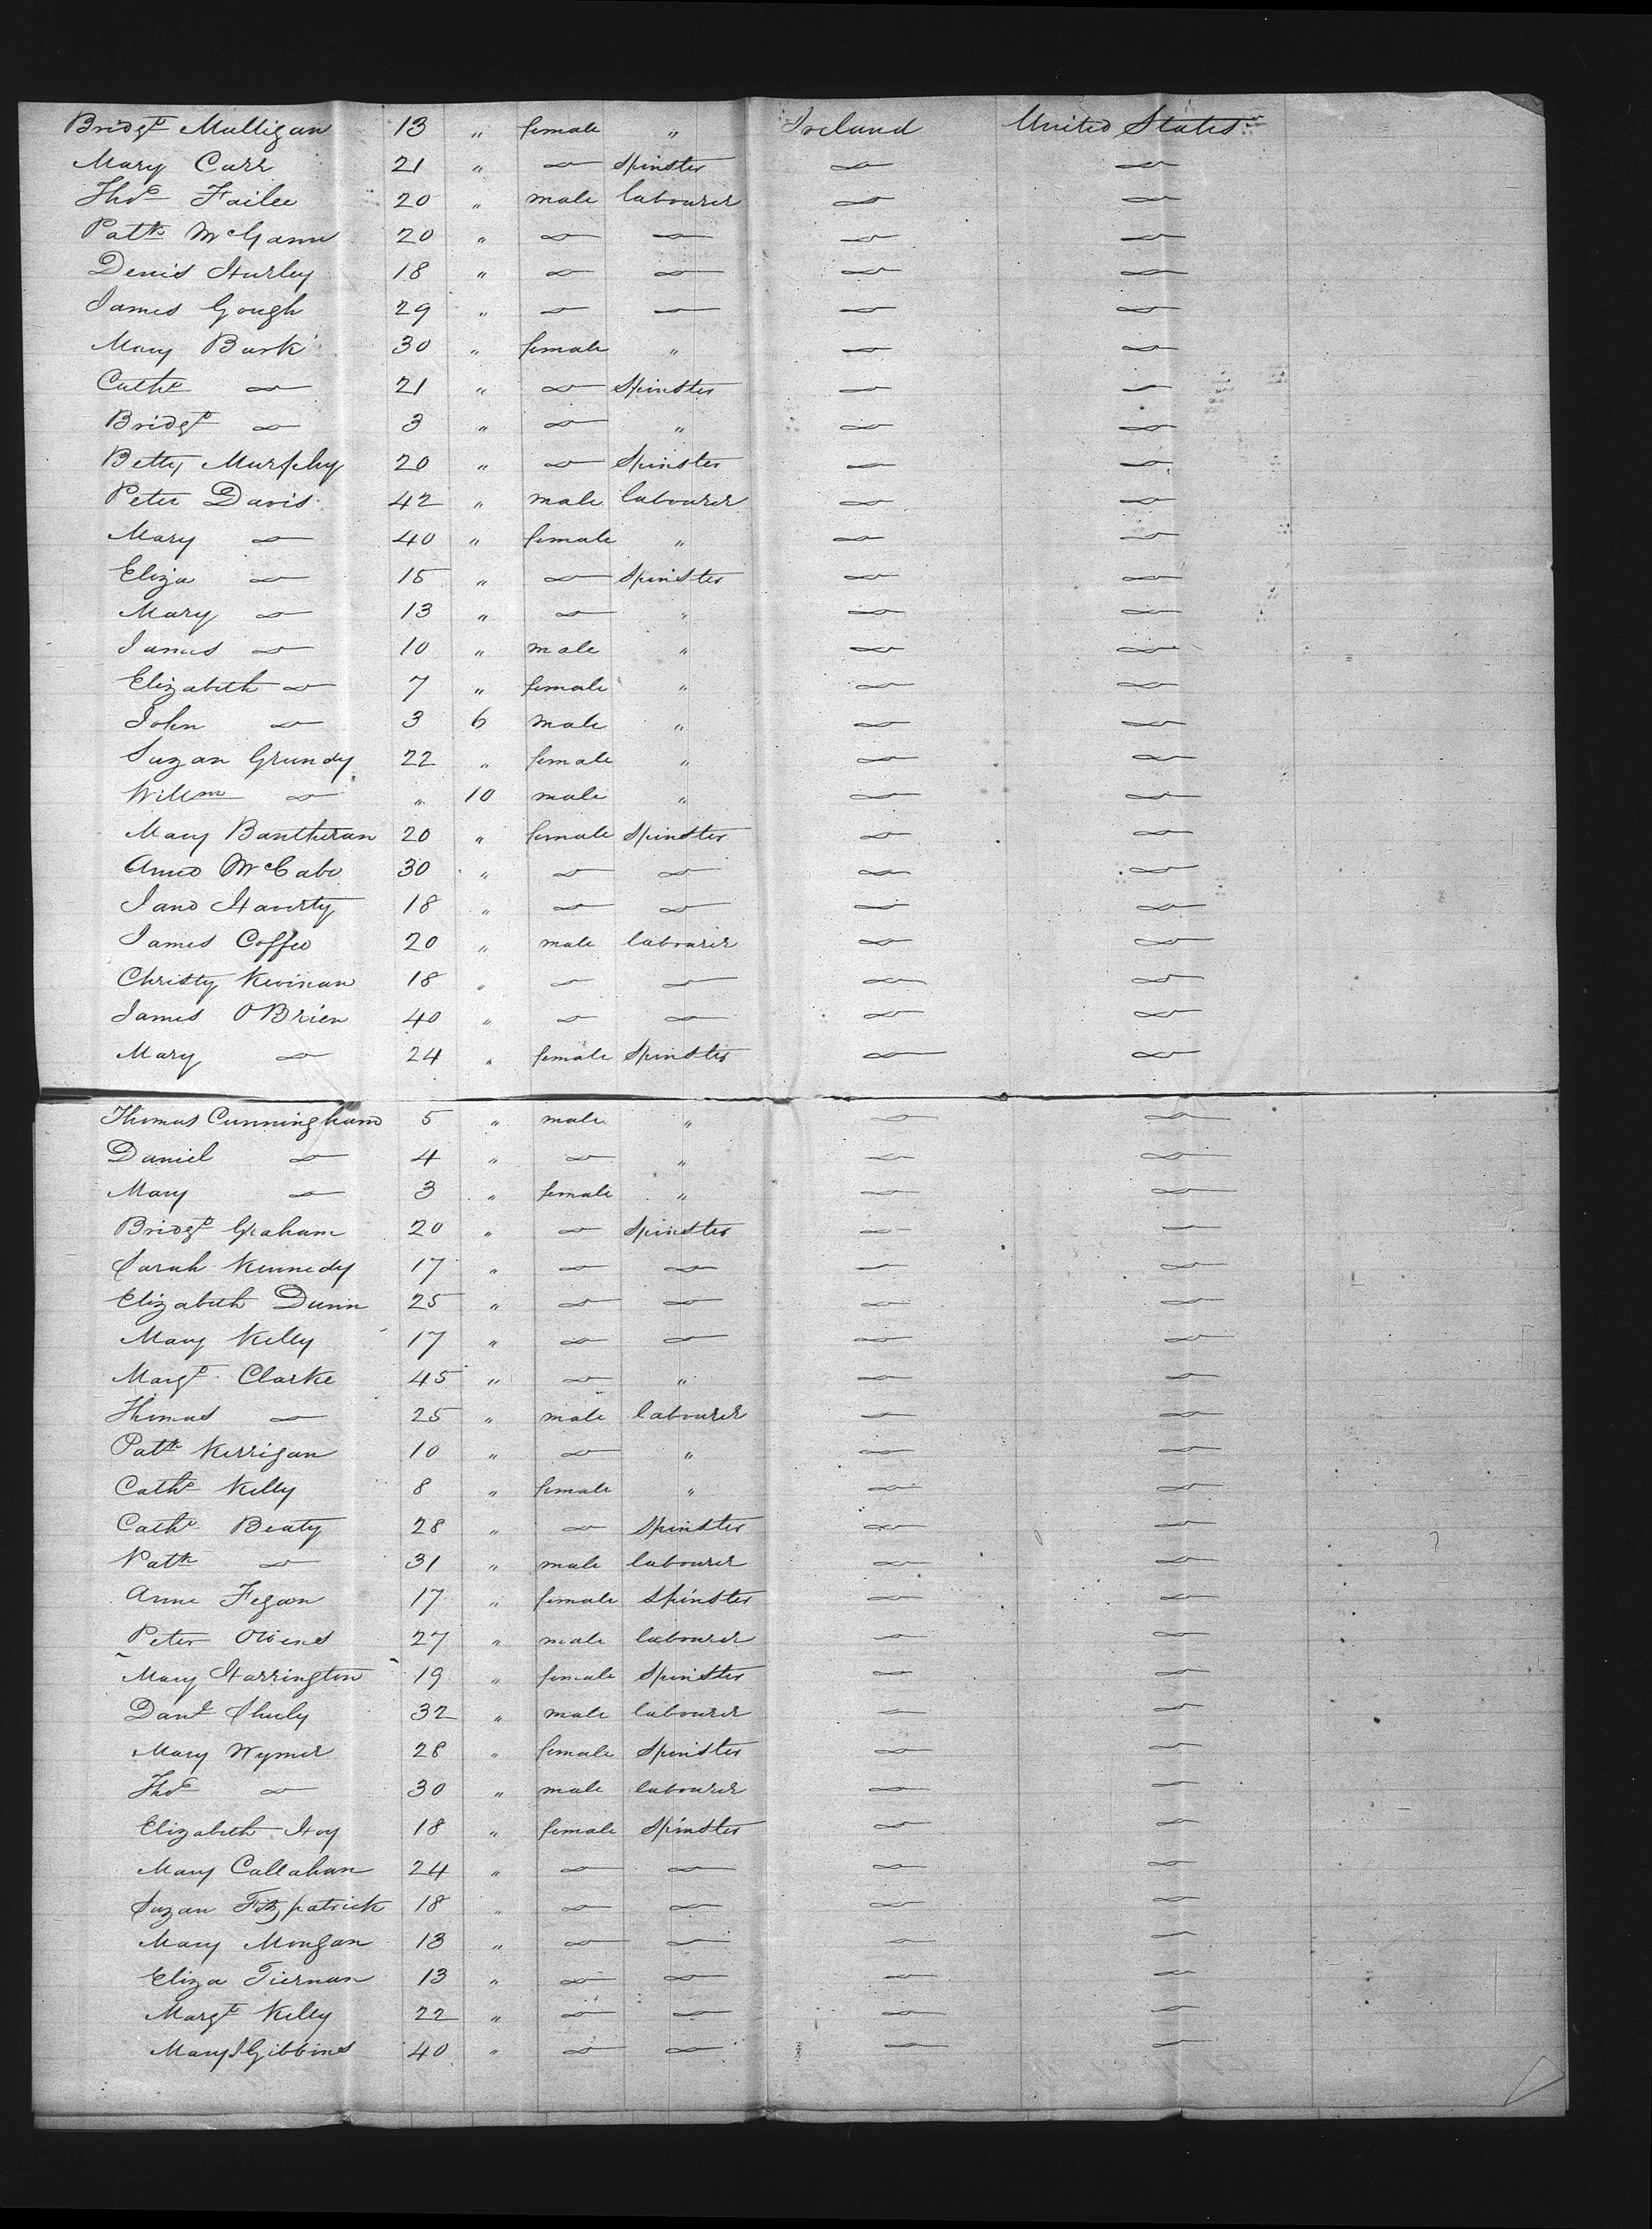 Bridgt Mulligan 13 " female " Ireland United States
Mary Carr 21 " do Spinster do do
Thos Failee 20 " male labourer do do
Patk McGann 20 " do do do do
Denis Hurley 18 " do do do do
James Gough 29 " do do do do
Mary Burk 30 " female " do do
Cathe do 21 " do Spinster do do
Bridgt do 3 " do " do do
Betty Murphy 20 " do Spinster do do
Peter Davis 42 " male labourer do do
Mary do 40 " female " do do
Eliza do 15 " do Spinster do do
Mary do 13 " do " do do
James do 10 " male " do do
Elizabeth do 7 " female " do do
John do 3 6 male " do do
Suzan Grundy 22 " female " do do
Willm do " 10 male " do do
Mary Bantheran 20 " female Spinster do do
Anne McCabe 30 " do do do do
Jane Haverty 18 " do do do do
James Coffee 20 " male labourer do do
Christy Kevinan 18 " do do do do
James O'Brien 40 " do do do do
Mary do 24 " female Spinster do do
Thomas Cunningham 5 " male " do do
Daniel do 4 " do " do do
Mary do 3 " female " do do
Bridgt Graham 20 " do Spinster do do
Sarah Kennedy 17 " do do do do
Elizabeth Dunn 25 " do do do do
Mary Kelly 17 " do do do do
Margt Clarke 45 " do " do do
Thomas do 25 " male labourer do do
Patk Kerrigan 10 " do " do do
Cathe Kelly 8 " female " do do
Cathe Beaty 28 " do Spinster do do
Patk do 31 " male labourer do do
Anne Fegan 17 " female Spinster do do
Peter Owens 27 " male labourer do do
Mary Harrington 19 " female Spinster do do
Danl Shuly 32 " male labourer do do
Mary Wymer 28 " female Spinster do do
Thos do 30 " male labourer do do
Elizabeth Hoy 18 " female Spinster do do
Mary Callahan 24 " do do do do
Suzan Fitzpatrick 18 " do do do do
Mary Mongan 13 " do do do do
Eliza Tiernan 13 " do do do do
Margt Kelly 22 " do do do do
Mary Gibbins 40 " do do do do